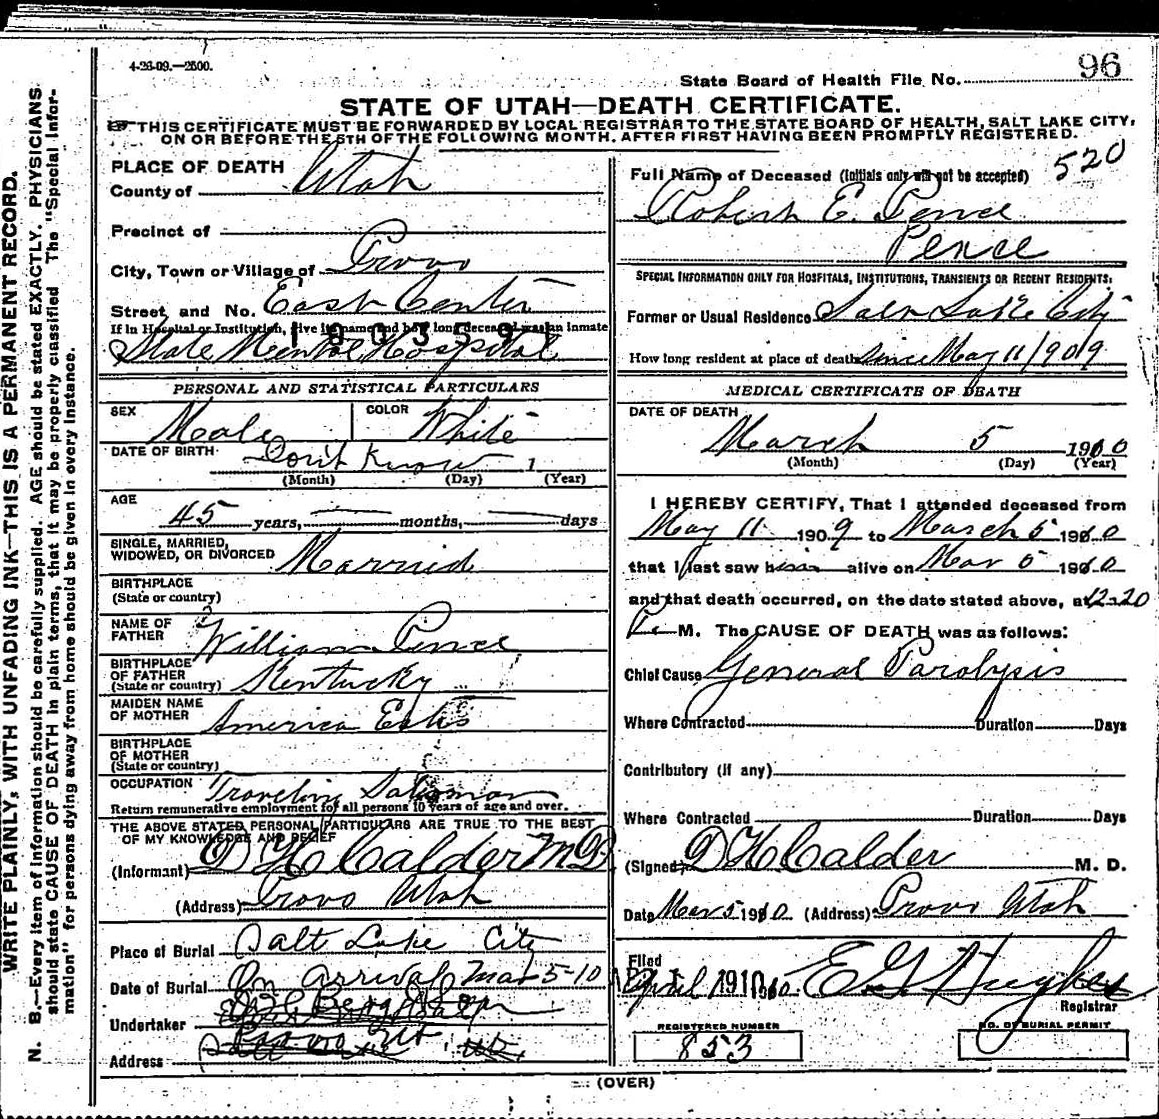 4-26-09.—2500.
State Board of Health File No. 96
STATE OF UTAH—DEATH CERTIFICATE.
THIS CERTIFICATE MUST BE FORWARDED BY LOCAL REGISTRAR TO THE STATE BOARD OF HEALTH, SALT LAKE CITY,
ON OR BEFORE THE 5TH OF THE FOLLOWING MONTH, AFTER FIRST HAVING BEEN PROMPTLY REGISTERED.
WRITE PLAINLY, WITH UNFADING INK—THIS IS A PERMANENT RECORD.
N. B.—Every item of information should be carefully supplied. AGE should be stated EXACTLY. PHYSICIANS
should state CAUSE OF DEATH in plain terms, that it may be properly classified. The "Special Infor-
mation" for persons dying away from home should be given in every instance.
PLACE OF DEATH
County of Utah
Precinct of
City, Town or Village of Provo
Street and No. East Center
If in Hospital or Institution, give its name and how long deceased was an inmate
State Mental Hospital
PERSONAL AND STATISTICAL PARTICULARS
SEX Male COLOR White
DATE OF BIRTH Don't Know 1
(Month) (Day) (Year)
AGE
45 years, months, days
SINGLE, MARRIED,
WIDOWED, OR DIVORCED Married
BIRTHPLACE
(State or country)
NAME OF
FATHER William Pence
BIRTHPLACE
OF FATHER
(State or country) Kentucky
MAIDEN NAME
OF MOTHER America
BIRTHPLACE
OF MOTHER
(State or country)
OCCUPATION Traveling Salesman
Return remunerative employment for all persons 10 years of age and over.
THE ABOVE STATED PERSONAL PARTICULARS ARE TRUE TO THE BEST
OF MY KNOWLEDGE AND BELIEF
(Informant) D H Calder M.D.
(Address) Provo Utah
Place of Burial Salt Lake City
Date of Burial On arrival Mar 5-10
Undertaker
Address
520
Full Name of Deceased (Initials only will not be accepted)
Robert E. Pence
Pence
SPECIAL INFORMATION ONLY FOR HOSPITALS, INSTITUTIONS, TRANSIENTS OR RECENT RESIDENTS.
Former or Usual Residence Salt Lake City
How long resident at place of death since May 11/909
MEDICAL CERTIFICATE OF DEATH
DATE OF DEATH
March 5 1910
(Month) (Day) (Year)
I HEREBY CERTIFY, That I attended deceased from
May 11 1909 to March 5 1910
that I last saw him alive on Mar 5 1910
and that death occurred, on the date stated above, at 12-20
M. The CAUSE OF DEATH was as follows:
Chief Cause General Paralysis
Where Contracted Duration Days
Contributory (if any)
Where Contracted Duration Days
(Signed) D H Calder M. D.
Date Mar 5 1910 (Address) Provo Utah
Filed
April 1 1910 E G Hughes
Registrar
REGISTERED NUMBER
853
NO. OF BURIAL PERMIT
(OVER)